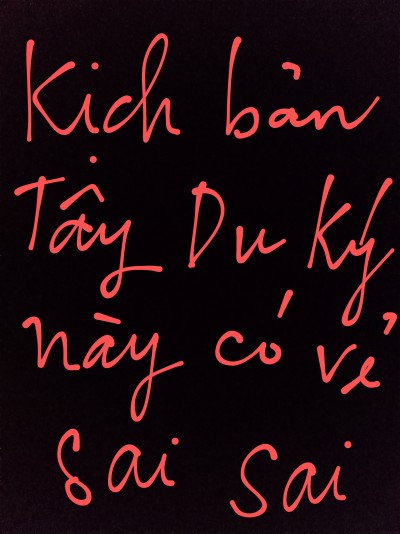 Kịch bản
Tây Du Ký
này có vẻ
sai sai